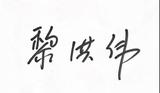 黎洪伟